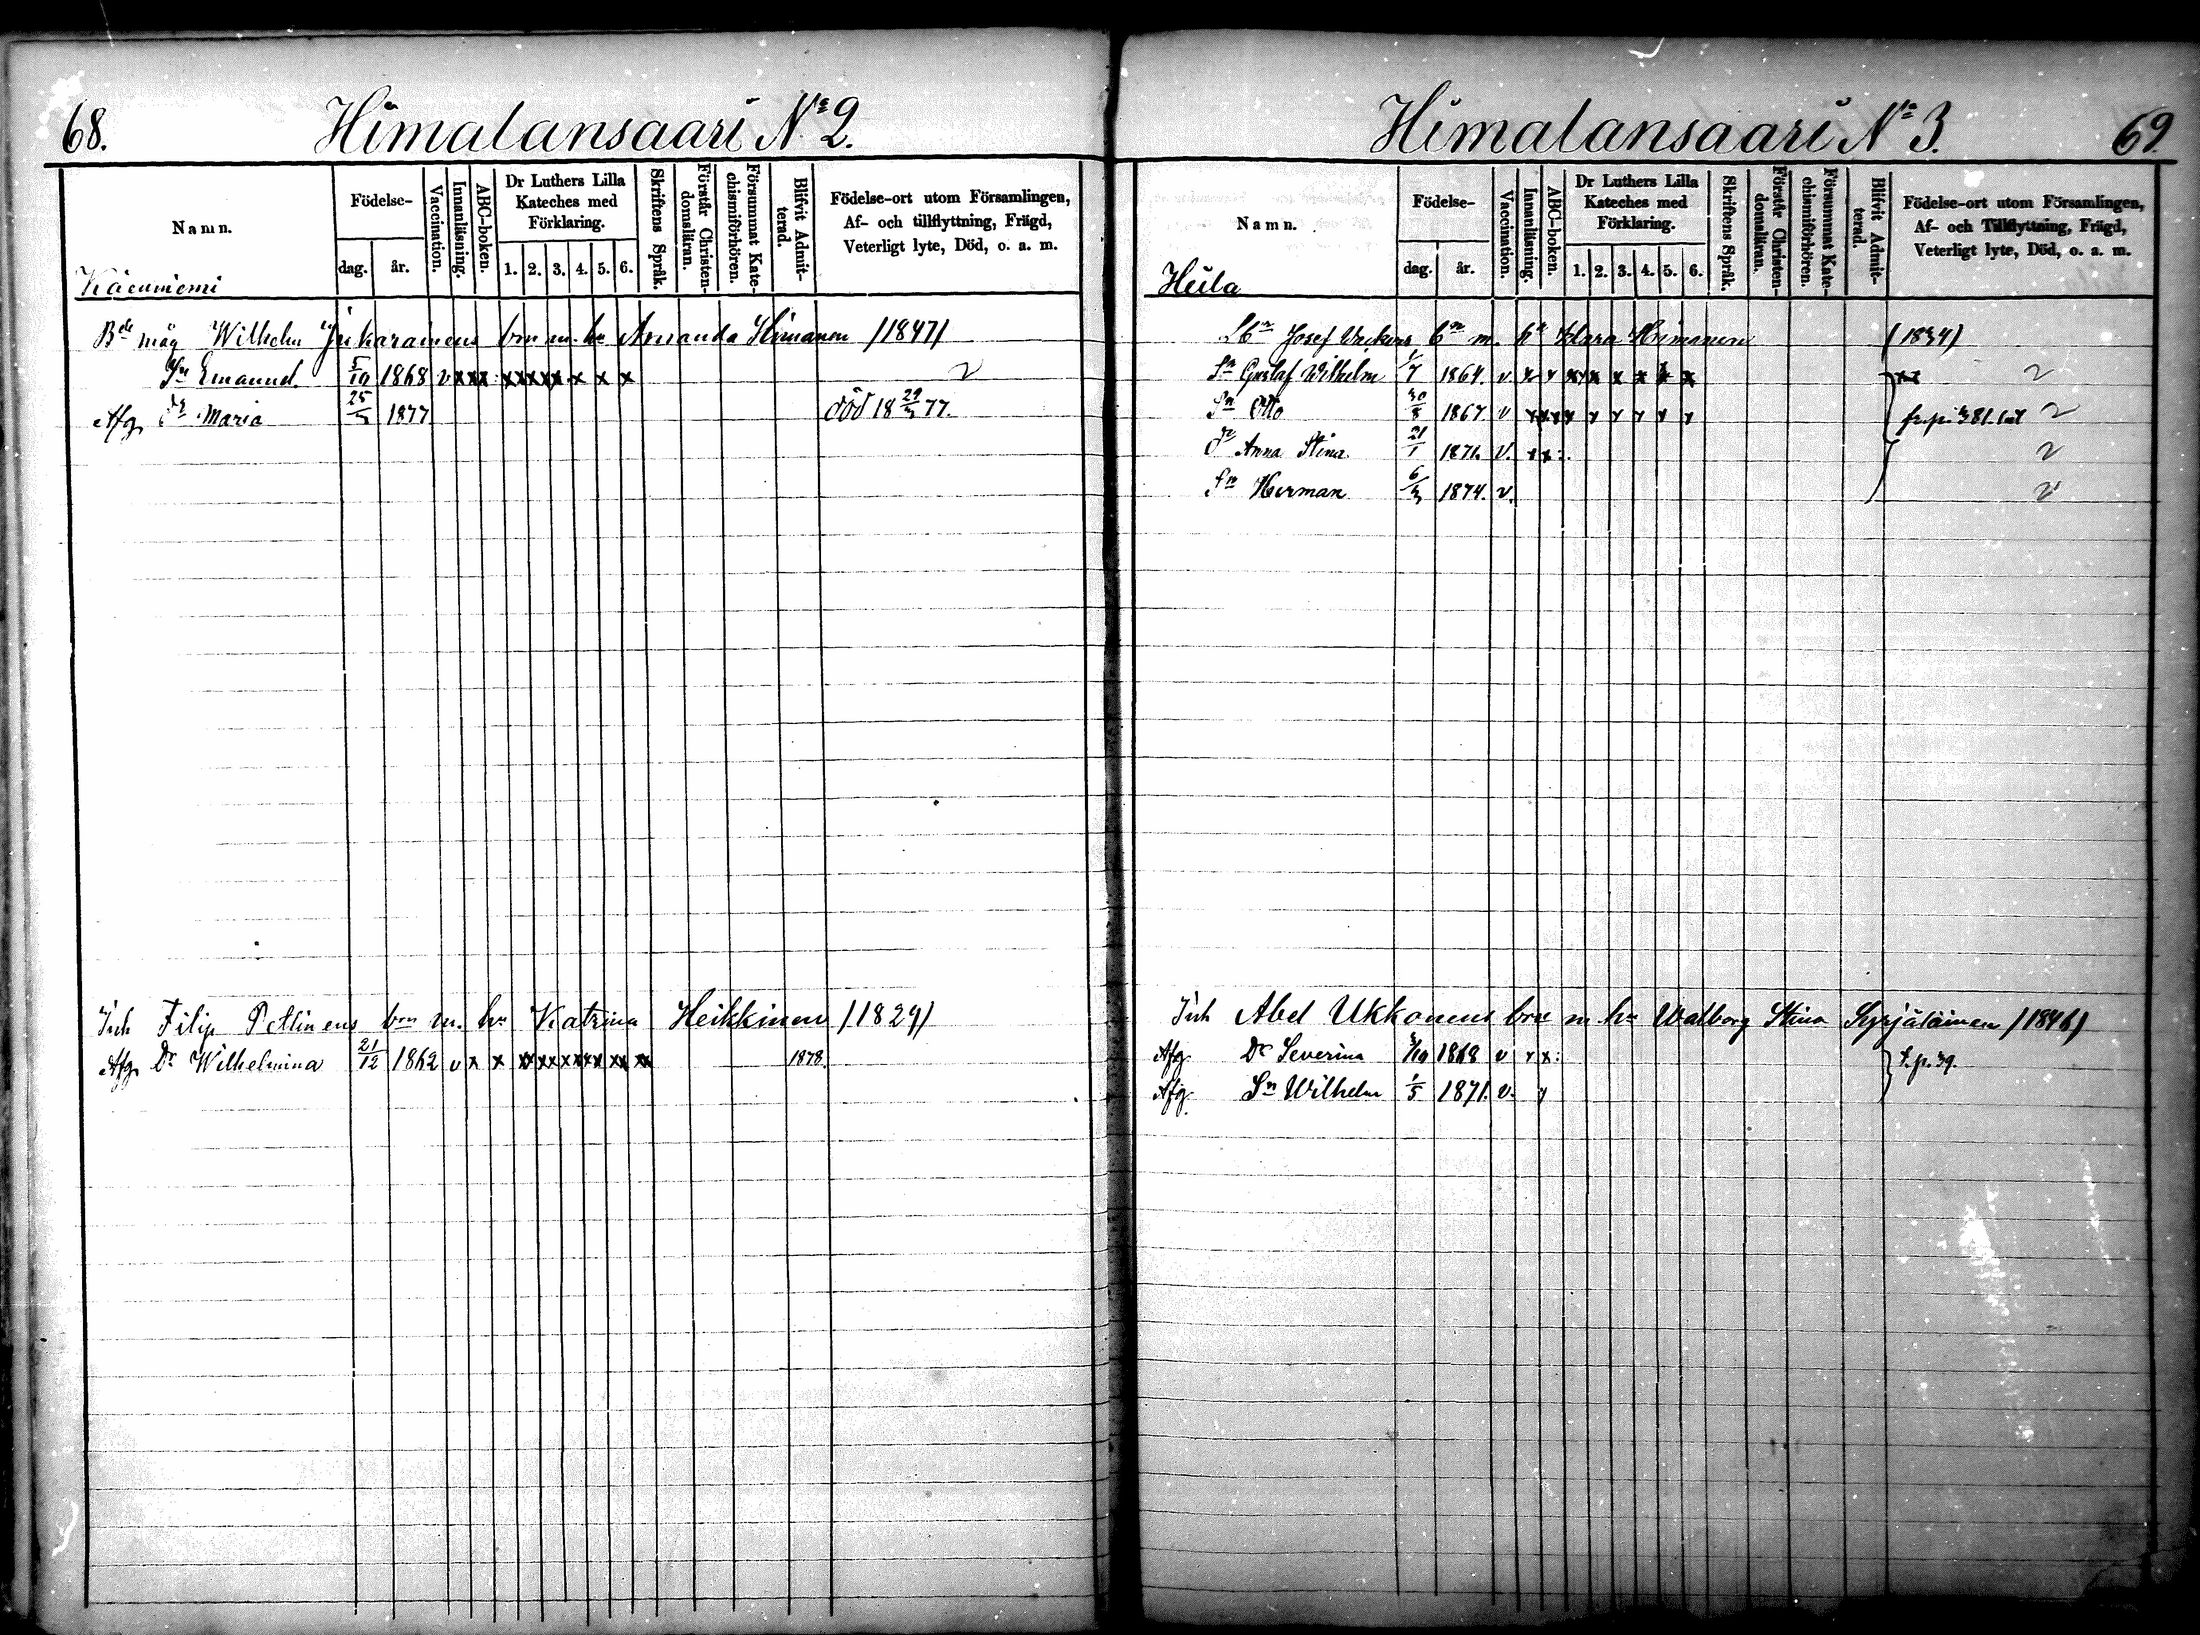 68. Himalansaari No 2.
Namn.
Födelse-
dag. år.
Vaccination.
Innanläsning.
ABC-boken.
Dr Luthers Lilla Kateches med Förklaring.
1. 2. 3. 4. 5. 6.
Skriftens Språk.
Förstår Christendomsläran.
Försummat Katechismiförhören.
Blifvit Admitterad.
Födelse-ort utom Församlingen,
Af- och tillflyttning, Frägd,
Veterligt lyte, Död, o. a. m.
Wilhelm bm m. hu Amanda Himanen /1847/
Sn Emanuel 5/10 1868 v x x x x x x x x x x
Afg. Dr Maria 25/5 1877 död 18 29/5 77.
Inh Filip Pettinens brn m. hu Katrina Heikkinen /1829/
Afg. Dr Wilhelmina 21/12 1862 v x x xx xx xx xx xx xx 1878.
Himalansaari No 3. 69.
Namn.
Födelse-
dag. år.
Vaccination.
Innanläsning.
ABC-boken.
Dr Luthers Lilla Kateches med Förklaring.
1. 2. 3. 4. 5. 6.
Skriftens Språk.
Förstår Christendomsläran.
Försummat Katechismiförhören.
Blifvit Admitterad.
Födelse-ort utom Församlingen,
Af- och Tillflyttning, Frägd,
Veterligt lyte, Död, o. a. m.
Heila
Josef bn m. hu Klara Himanen (1834)
Sn Gustaf Wilhelm 1/7 1864. v x x xx x x x x x
Sn Otto 30/8 1867. v x x x x x x x x
Dr Anna Stina 21/1 1871. v. x x:
Sn Herman 6/3 1874. v.
Inh Abel Ukkonens brn m hu Walborg Stina Syrjäläinen /1846/
Afg. Dr Severina 3/10 1868 v x x: f. p. 39.
Afg. Sn Wilhelm 1/5 1871. v. x